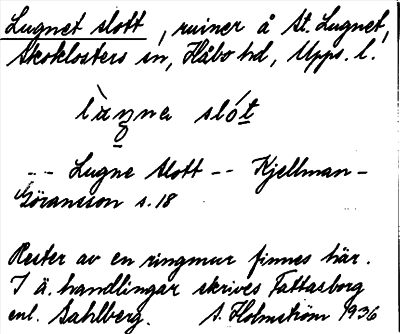 Lugnet slott, ruiner å St. Lugnet,
Skoklosters sn, Håbo hd, Upps. l.
lùŋna slót
-- Lugne slott -- Kjellman-
Göransson s. 18
Rester av en ringmur finnes här.
I ä. handlingar skrives Fattasborg
enl. Dahlberg. S. Holmström 1936